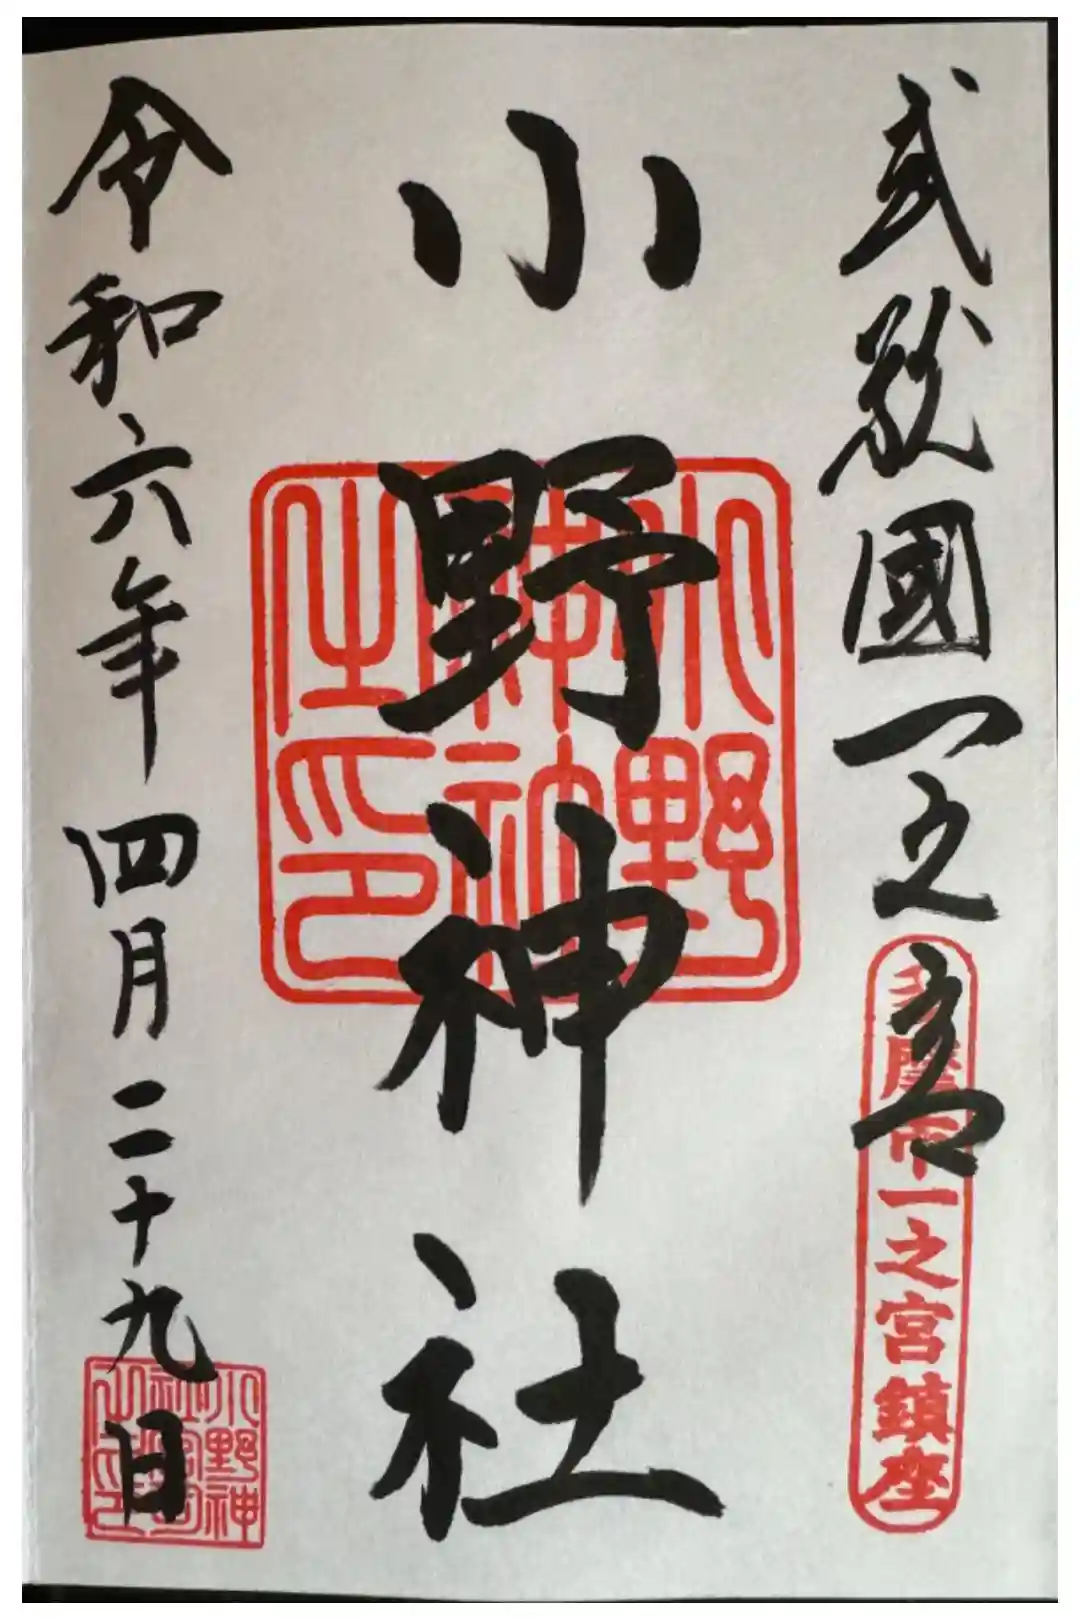 武蔵國一之宮
多摩市一之宮鎮座
小野神社
小野
神社
之印
令和六年四月二十九日
小野神